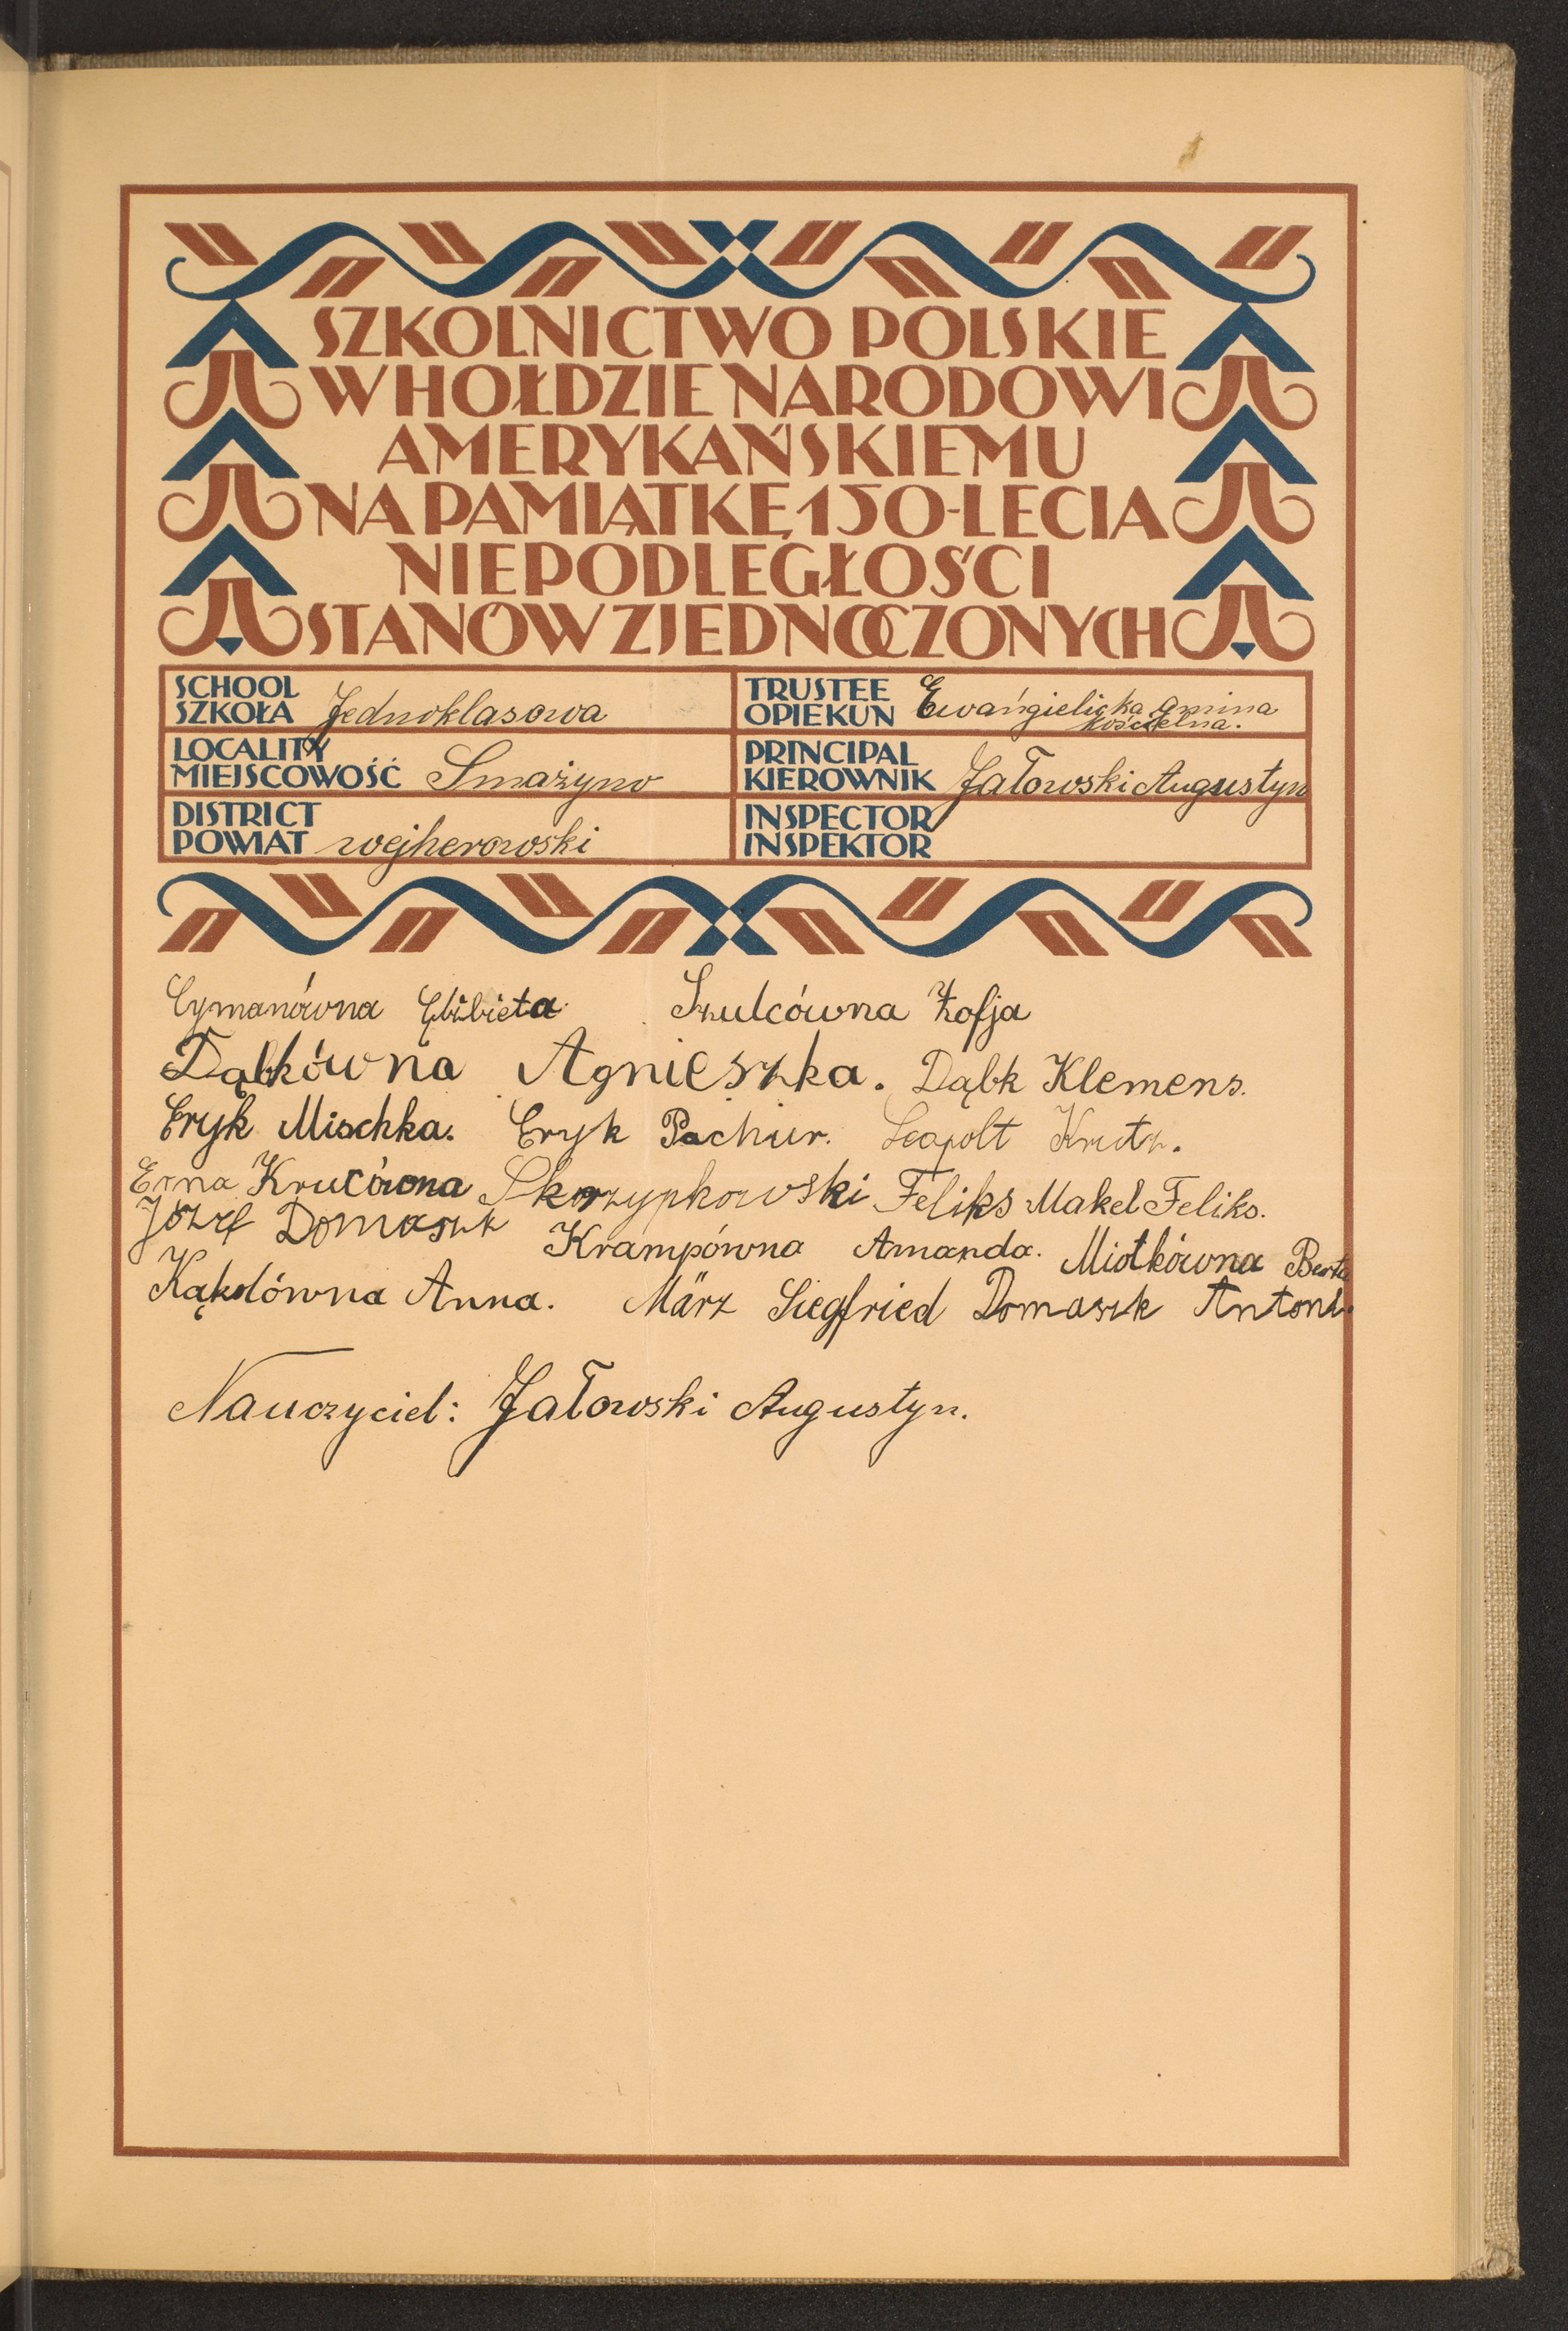 SZKOLNICTWO POLSKIE
W HOŁDZIE NARODOWI
AMERYKAŃSKIEMU
NA PAMIĄTKĘ 150-LECIA
NIEPODLEGŁOŚCI
STANÓW ZJEDNOCZONYCH
SCHOOL
SZKOŁA Jednoklasowa
TRUSTEE
OPIEKUN Ewangielicka gmina
kościelna.
LOCALITY
MIEJSCOWOŚĆ Smażyno
PRINCIPAL
KIEROWNIK Jałowski Augustyn
DISTRICT
POWIAT wejherowski
INSPECTOR
INSPEKTOR
Cymanówna Elżbieta. Szulcówna Zofja
Dąbkówna Agnieszka. Dąbk Klemens.
Eryk Mischka. Eryk Pachur. Leopolt Krutz.
Erna Krucówna Skorzypkowski Feliks Makel Feliks.
Józef Domaszk Krampówna Amanda. Miotkówna Berta
Kąkolówna Anna. März Siegfried Domaszk Antoni.
Nauczyciel: Jałowski Augustyn.